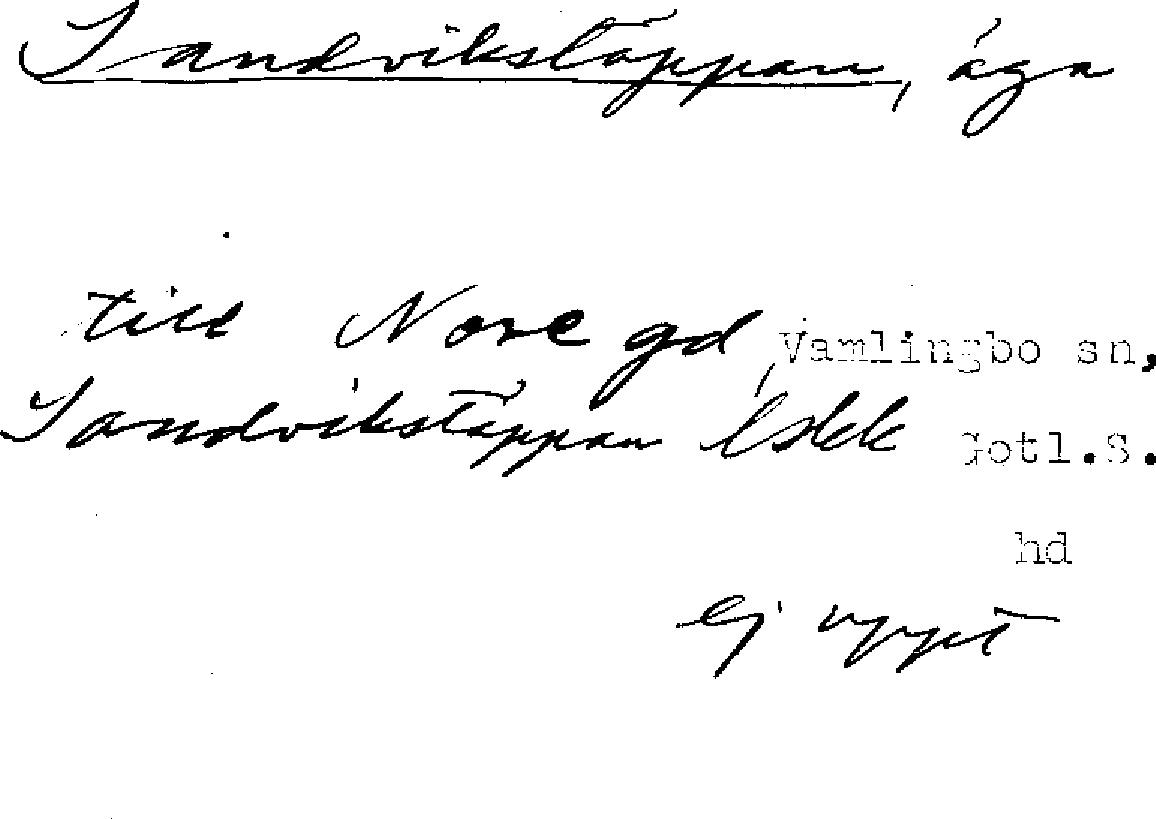 Sandvikstäppan, äga
till Nore gd, Vamlingbo sn,
Sandvikstäppan Gotl.S.
hd
ej uppt